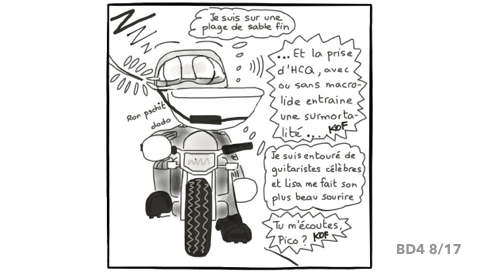 Je suis sur une
plage de sable fin
...Et la prise
d'HCQ, avec
ou sans macro-
lide entraine
une surmorta-
lité... KOF
Ron pschit
dodo
Je suis entouré de
guitaristes célèbres
et Lisa me fait son
plus beau sourire
Tu m'écoutes,
Pico ? KOF
BD4 8/17